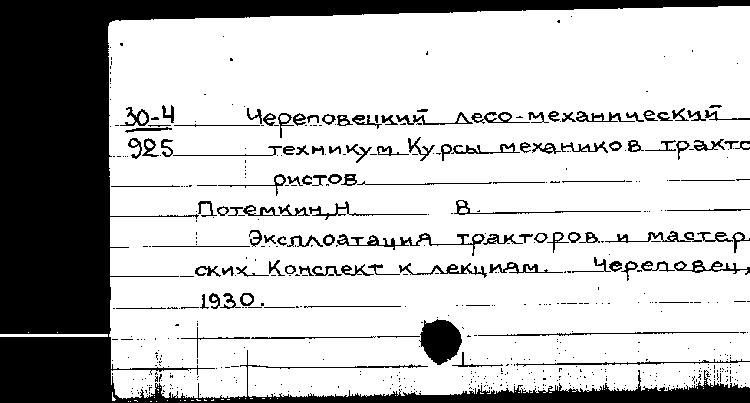 30-4 Череповецкий лесо-механический
925 техникум. Курсы механиков тракто
ристов.
Потемкин, Н. В.
Эксплоатация тракторов и мастер
ских. Конспект к лекциям. Череповец,
1930.